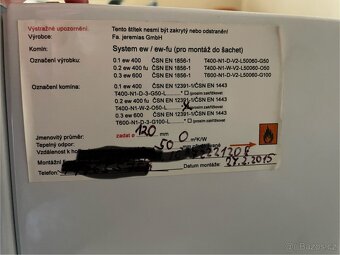 Výstražné upozornění: Tento štítek nesmí být zakrytý nebo odstraněn!
Výrobce: Fa. jeremias GmbH
Komín: System ew / ew-fu (pro montáž do šachet)
Označení výrobku: 0.1 ew 400 ČSN EN 1856-1 T400-N1-D-V2-L50060-G50
0.2 ew 400 fu ČSN EN 1856-1 T400-N1-W-V2-L50060-O50
0.3 ew 600 ČSN EN 1856-1 T600-N1-D-V2-L50060-G100
Označení komína: 0.1 ew 400 ČSN EN 12391-1/ČSN EN 1443
T400-N1-D-3-G50-L (prosím zaškrtkovat
0.2 ew 400 fu ČSN EN 12391-1/ČSN EN 1443
T400-N1-W-2-O50-L
0.3 ew 600 ČSN EN 12391-1/ČSN EN 1443
T600-N1-D-3-G100-L
Jmenovitý průměr: zadat ø 120 mm
Tepelný odpor: 0 m²K/W
Vzdálenost k 50
Montážní
Telefon: Datum montáže: 27.2.2015
Bazoš.cz